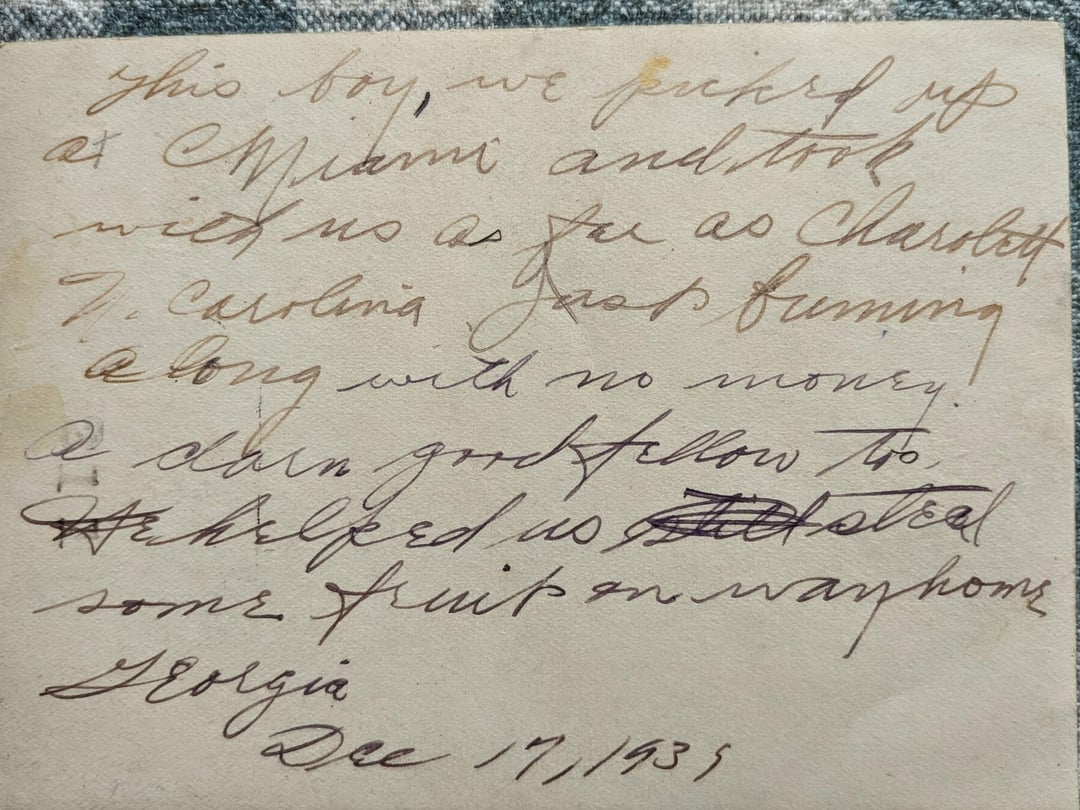 This boy, we picked up
at Miami and took
with us as far as Charolett
N. Carolina. Just bumming
along with no money.
A darn good fellow too.
He helped us steal
some fruit on way home
Georgia
Dec 17, 1939